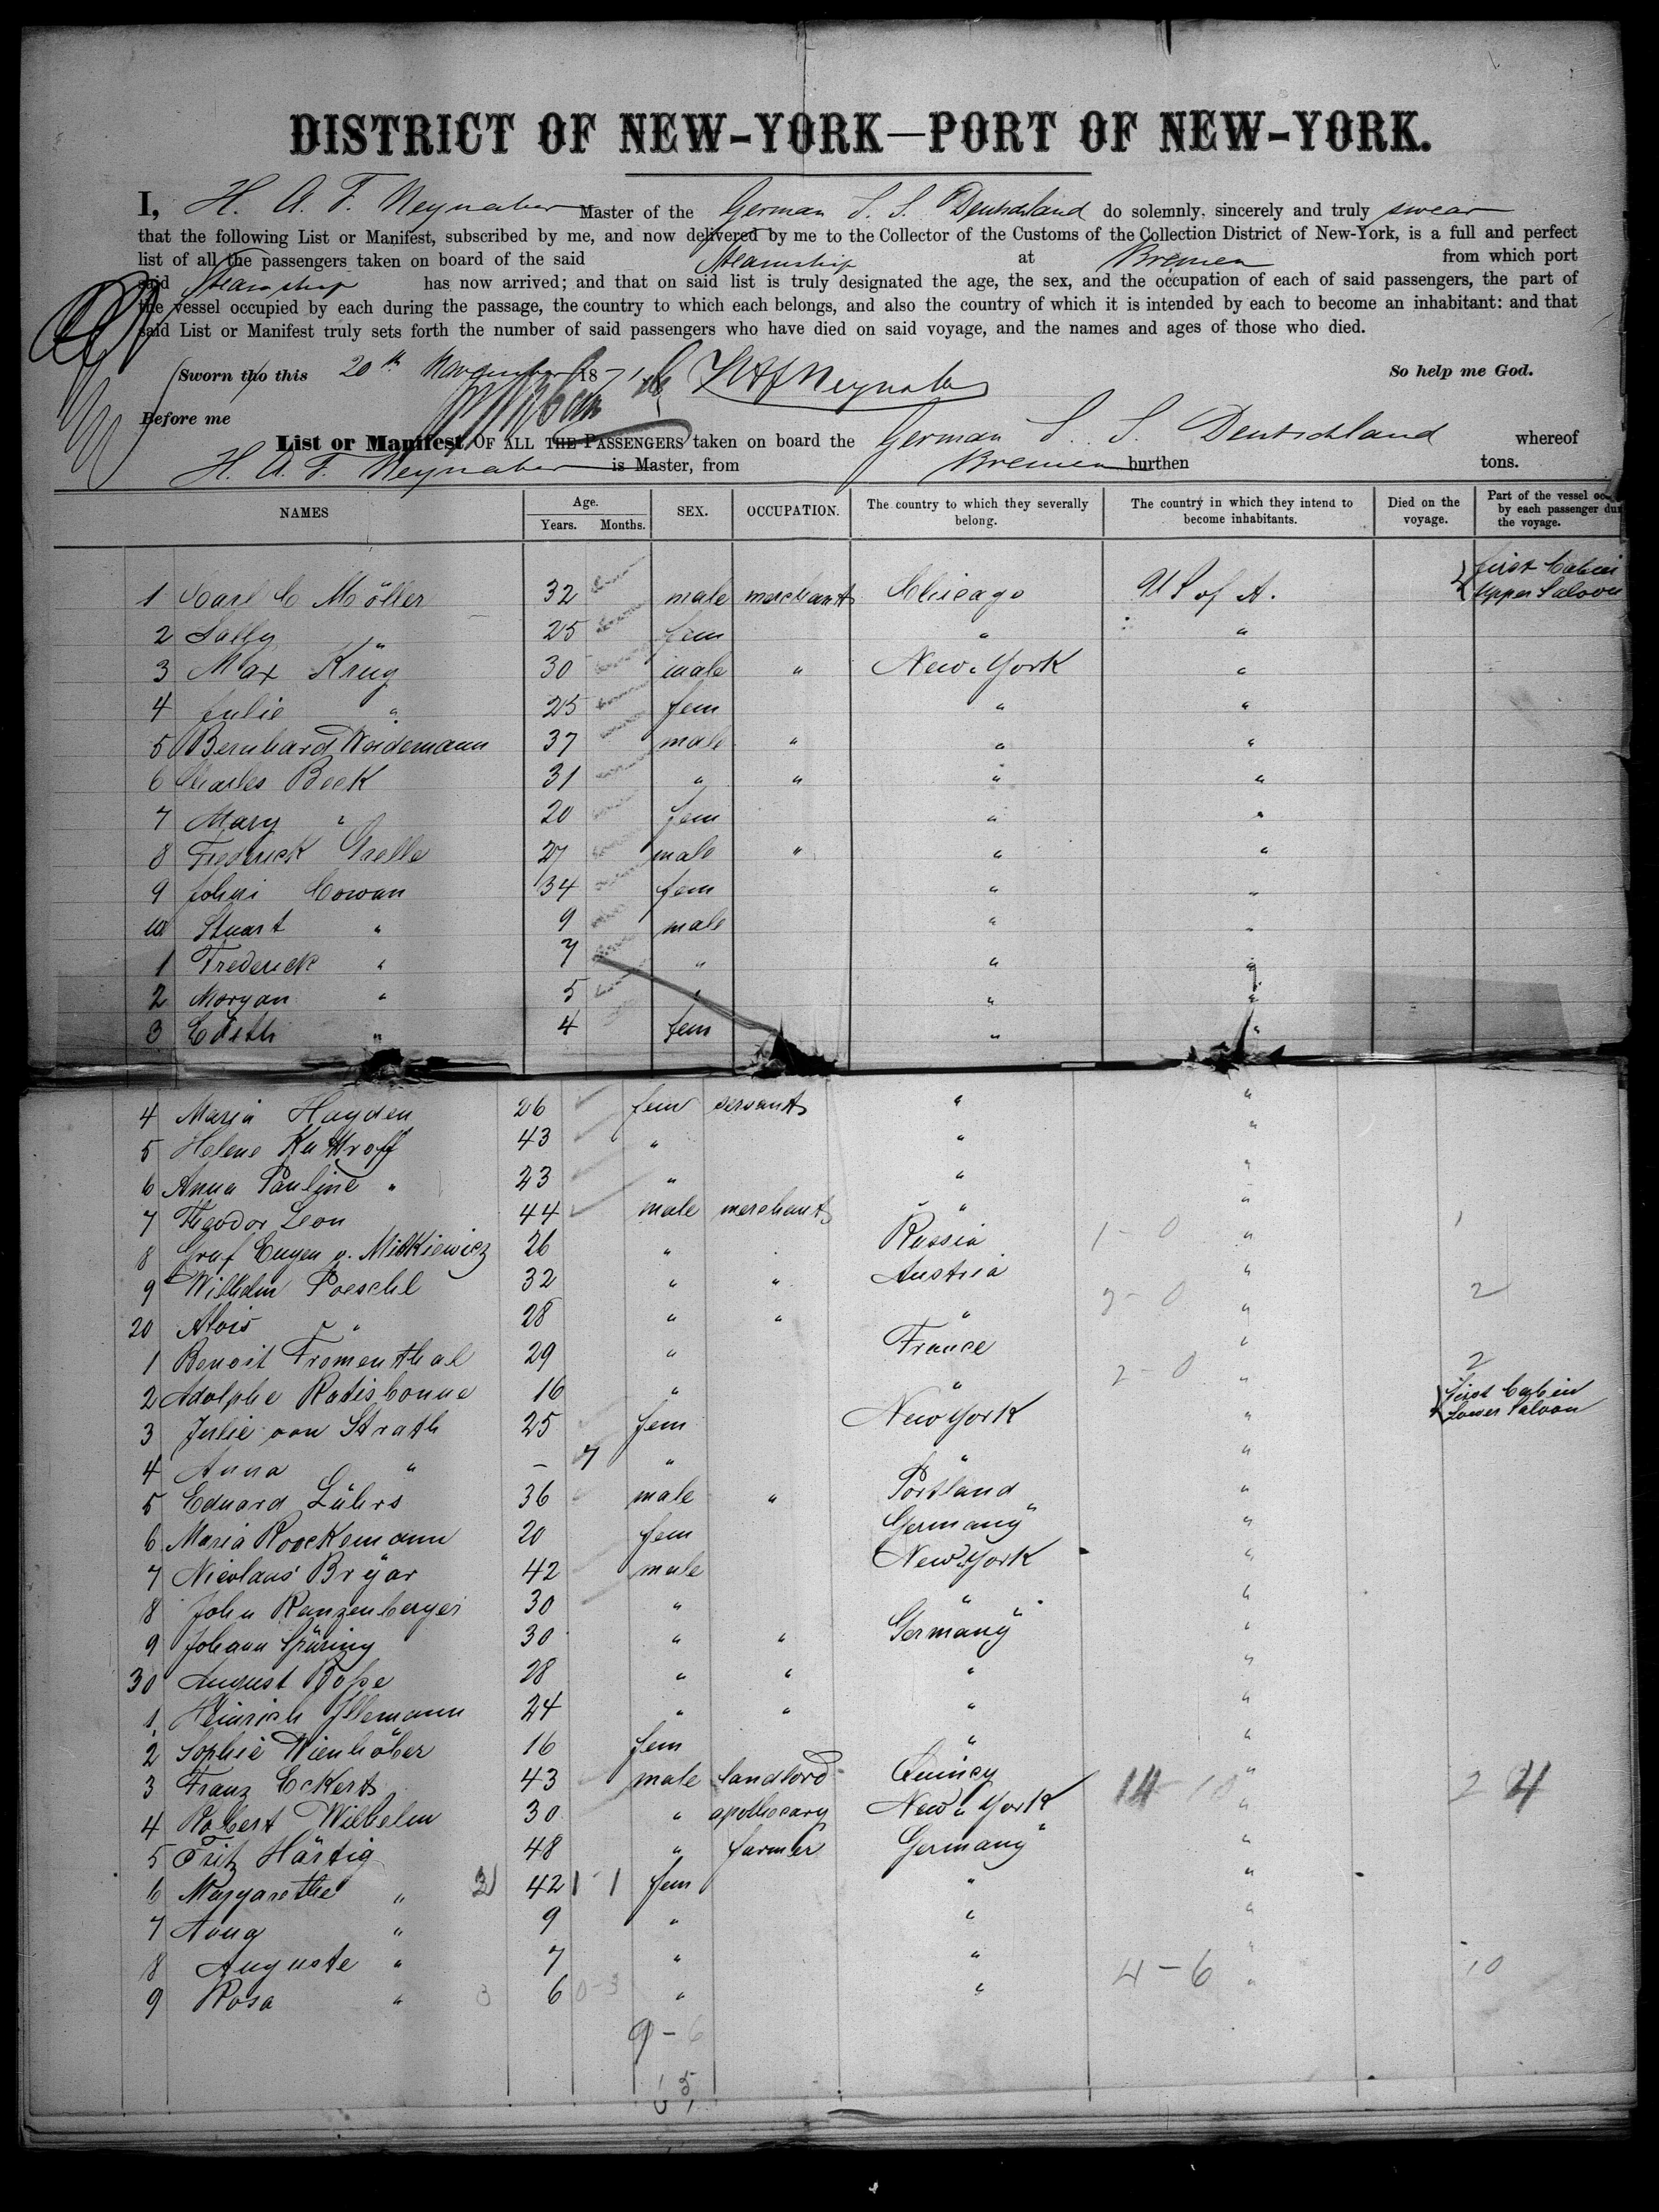 DISTRICT OF NEW-YORK—PORT OF NEW-YORK.
I, H. A. F. Neynaber Master of the German S. S. Deutschland do solemnly, sincerely and truly swear
that the following List or Manifest, subscribed by me, and now delivered by me to the Collector of the Customs of the Collection District of New-York, is a full and perfect
list of all the passengers taken on board of the said Steamship at Bremen from which port
said Steamship has now arrived; and that on said list is truly designated the age, the sex, and the occupation of each of said passengers, the part of
the vessel occupied by each during the passage, the country to which each belongs, and also the country of which it is intended by each to become an inhabitant: and that
said List or Manifest truly sets forth the number of said passengers who have died on said voyage, and the names and ages of those who died.
Sworn to this 20th November 1871 HAFNeynaber So help me God.
Before me
List or Manifest OF ALL THE PASSENGERS taken on board the German S. S. Deutschland whereof
H. A. F. Neynaber is Master, from Bremen burthen tons.
NAMES Age. Years. Months. SEX. OCCUPATION. The country to which they severally belong. The country in which they intend to become inhabitants. Died on the voyage. Part of the vessel by each passenger the voyage.
1 Carl C Möller 32 male merchant Chicago U S of A. first Cabin Upper Saloon
2 Sally " 25 fem " "
3 Max Krug 30 male " New-York "
4 Julie " 25 fem " "
5 Bernhard Weidemann 37 male " " "
6 Charles Beck 31 " " " "
7 Mary " 20 fem " "
8 Frederick Grelle 27 male " " "
9 Cowan 34 fem " "
10 Stuart " 9 male " "
1 Frederick " 7 " " "
2 Morgan " 5 " " "
3 Edith " 4 fem " "
4 Maria Hayden 26 fem servant " "
5 Helene Kuttroff 43 " " "
6 Anna Pauline " 23 " " "
7 Theodor Leon 44 male merchant " "
8 Graf Eugen v. Mickiewicz 26 " Russia 1-0 " 1
9 Wilhelm Poeschl 32 " " Austria "
20 Alois " 28 " " " 2-0 " 2
1 Benoit Fromenthal 29 " France "
2 Adolphe Ratisbonne 16 " " 2-0 " 2
3 Julie von Strath 25 fem New York " First Cabin Lower Saloon
4 Anna " - 7 " " "
5 Eduard Lührs 36 male " Portland "
6 Maria Roockemann 20 fem Germany "
7 Nicolaus Bryar 42 male New-York "
8 John Ranzenberger 30 " " "
9 Johann Spüring 30 " " Germany "
30 August Bosse 28 " " " "
1 Heinrich Illemann 24 " " " "
2 Sophie Wienhöber 16 fem " "
3 Franz Eckert 43 male landlord Quincy "
4 Robert Wilhelm 30 " apothecary New-York 14-10 " 24
5 Fritz Härtig 48 " farmer Germany "
6 Margarethe " 2 42 1-1 fem " "
7 Anna " 9 " " "
8 Auguste " 7 " " "
9 Rosa " 3 6 0-3 " " 4-6 " 10
9-6